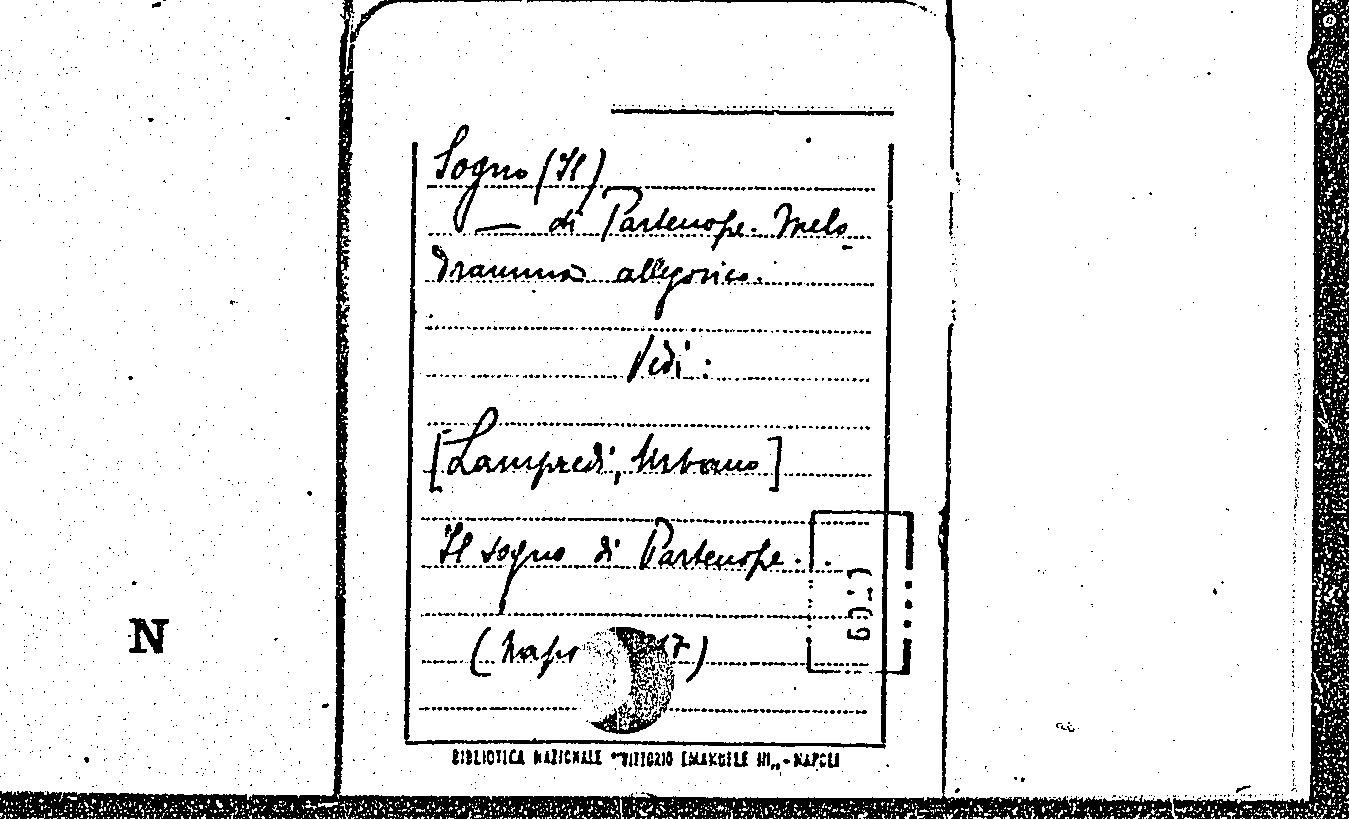 Sogno (Il)
— di Partenope. Melo
dramma allegorico.
Vedi:
[Lampredi, Urbano]
Il sogno di Partenope..
(Napo 17)
BIBLIOTECA NAZIONALE "VITTORIO EMANUELE III" - NAPOLI
N